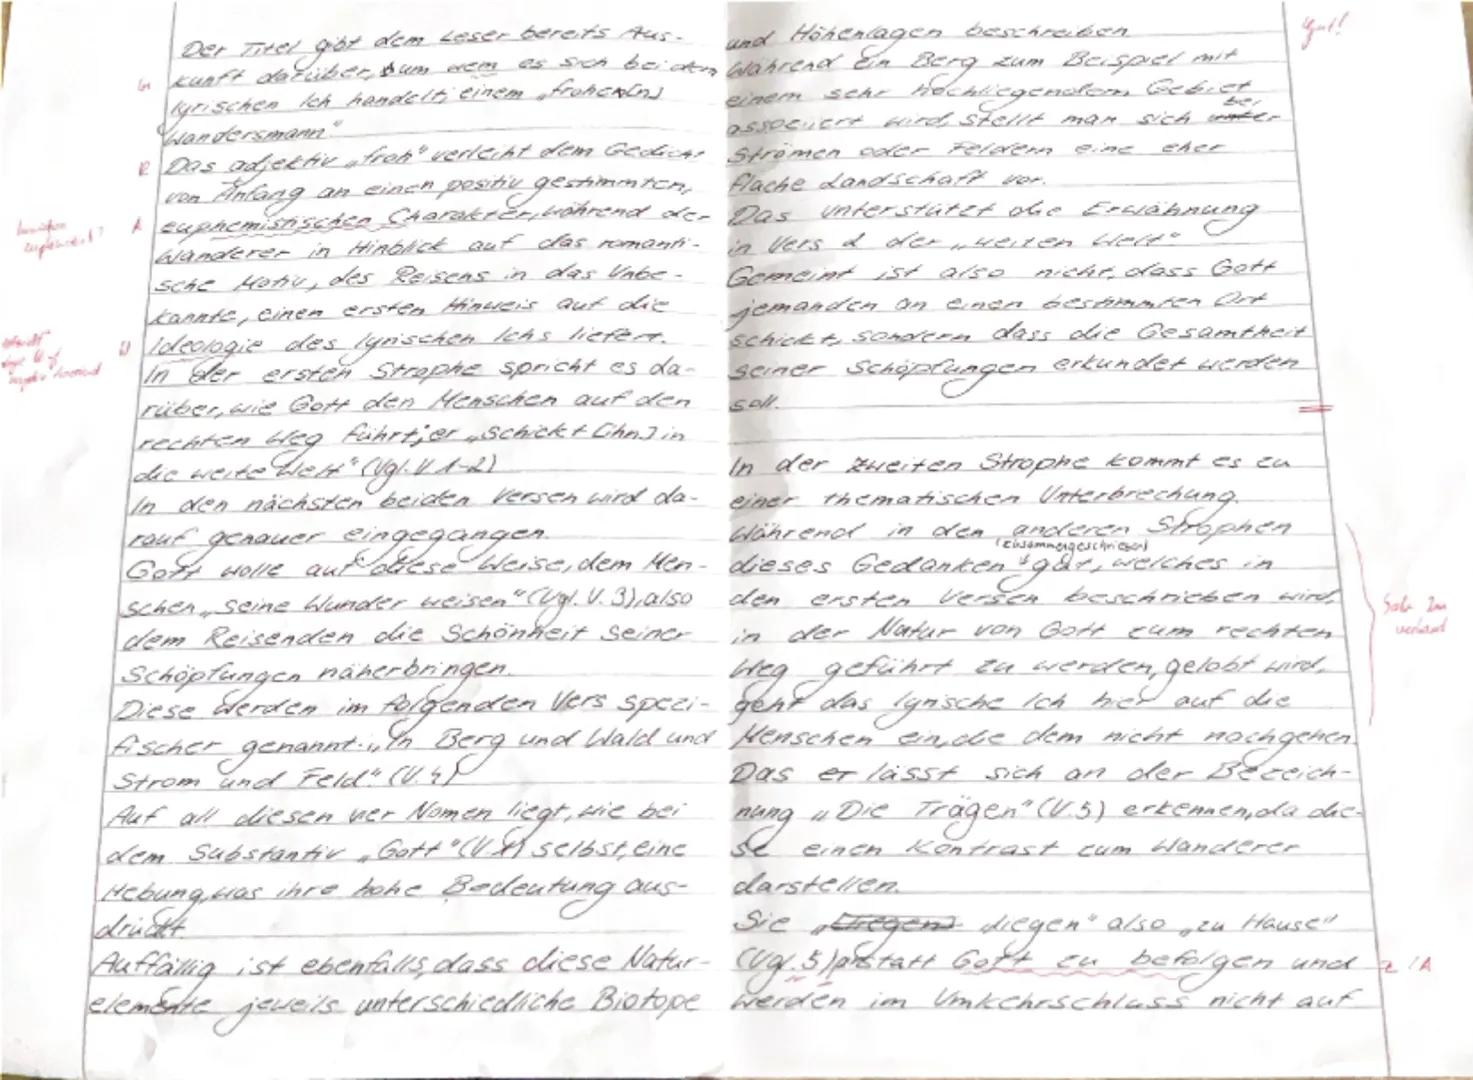 Der Titel gibt dem Leser bereits Aus-
kunft darüber, um wem es sich bei dem
lyrischen Ich handelt; einem „frohe[n]
Wandersmann“
Das adjektiv „froh“ verleiht dem Gedicht
von Anfang an einen positiv gestimmten,
euphemistischen Charakter, während der
Wanderer in Hinblick auf das romanti-
sche Motiv, des Reisens in das Unbe-
kannte, einen ersten Hinweis auf die
Ideologie des lyrischen Ichs liefert.
In der ersten Strophe spricht es da-
rüber, wie Gott den Menschen auf den
rechten Weg führt; er „schickt [ihn] in
die weite Welt“ (Vgl. V. 1-2)
In den nächsten beiden Versen wird da-
rauf genauer eingegangen.
Gott wolle auf diese Weise, dem Men-
schen „seine Wunder weisen“ (Vgl. V. 3), also
dem Reisenden die Schönheit seiner
Schöpfungen näherbringen.
Diese werden im folgenden Vers spezi-
fischer genannt: „In Berg und Wald und
Strom und Feld“ (V. 4)
Auf all diesen vier Nomen liegt, wie bei
dem Substantiv „Gott“ selbst, eine
Hebung, was ihre hohe Bedeutung aus-
drückt.
Auffällig ist ebenfalls, dass diese Natur-
elemente jeweils unterschiedliche Biotope
G
R
A
W
und Höhenlagen beschreiben
Während ein Berg zum Beispiel mit
einem sehr hochliegendem Gebiet
assoziiert wird, stellt man sich bei
Strömen oder Feldern eine eher
flache Landschaft vor.
Das unterstützt die Erwähnung
in Vers 2 der „weiten Welt“
Gemeint ist also nicht, dass Gott
jemanden an einen bestimmten Ort
schickt, sondern dass die Gesamtheit
seiner Schöpfungen erkundet werden
soll.
gut!
In der zweiten Strophe kommt es zu
einer thematischen Unterbrechung.
Während in den anderen Strophen
(zusammengeschrieben)
dieses Gedanken gut, welches in
den ersten Versen beschrieben wird,
in der Natur von Gott zum rechten
Weg geführt zu werden, gelobt wird,
geht das lyrische Ich hier auf die
Menschen ein, die dem nicht nachgehen.
Das er lässt sich an der Bezeich-
nung „Die Trägen“ (V. 5) erkennen, da die-
se einen Kontrast zum Wanderer
darstellen.
Sie „liegen“ also „zu Hause“
(Vgl. 5) anstatt Gott zu befolgen und
werden im Umkehrschluss nicht auf
Z
A